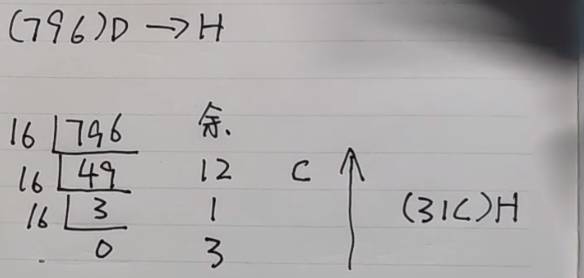 (796)D → H
16 796 余.
16 49 12 C
16 3 1 (31C)H
0 3